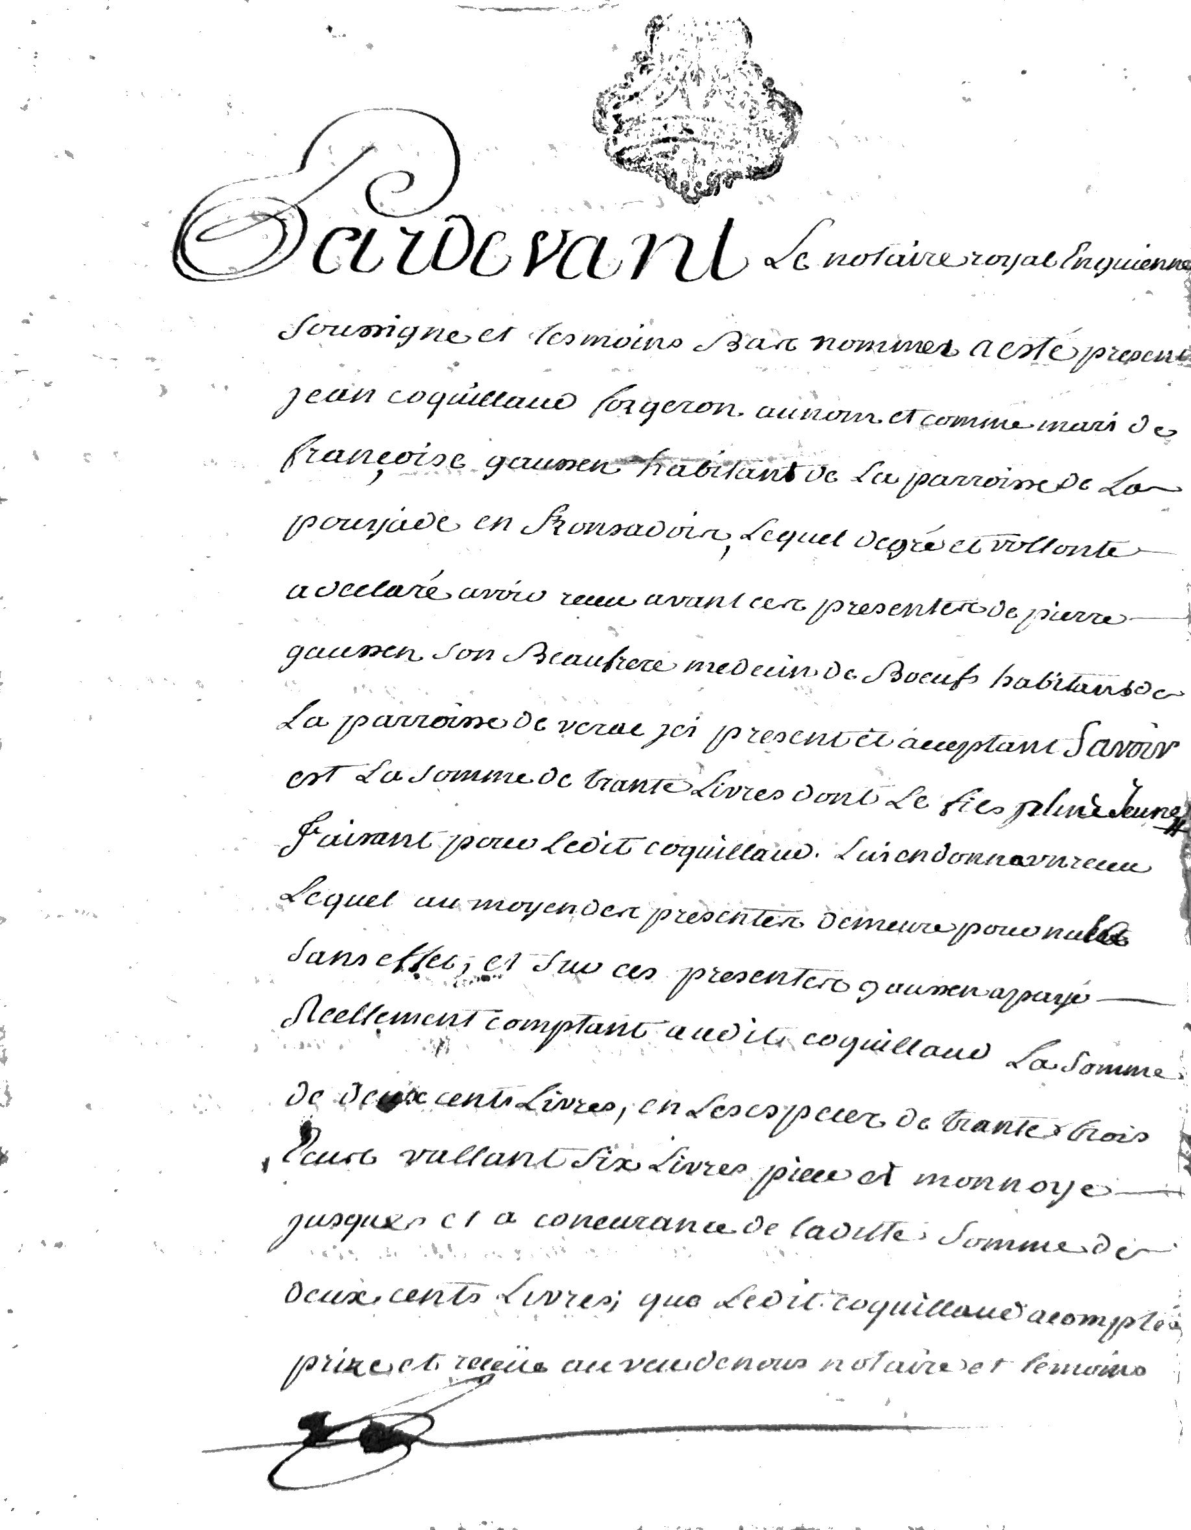 Pardevant Le notaire royal Enguienne
Soussigne et tesmoins Bas nommes a esté present
jean coquillaud forgeron au nom et comme mari de
françoise gaussen habitant de La parroisse de La
pouyade en fronsadois, Lequel degré et vollonte
a declaré avoir receu avant ces presentes de pierre
gaussen son Beaufrere medecin de Boeufs habitant de
La parroisse de verac jci present et aceptant Savoir
est La somme de trante Livres dont Le fies plus Jeune
faisant pour Ledit coquillaud Lui en donna un receu
Lequel au moyen des presentes demeure pour nul et
sans effet; et sur ces presentes gaussen a payé
Reellement comptant audit coquillaud La somme
de deux cents Livres, en Les especes de trante trois
Ecus vallant six Livres piece et monnoye
jusques et a concurance de laditte somme de
deux cents Livres; que Ledit coquillaud a compté
prize et receüe au veu de nous notaire et temoins